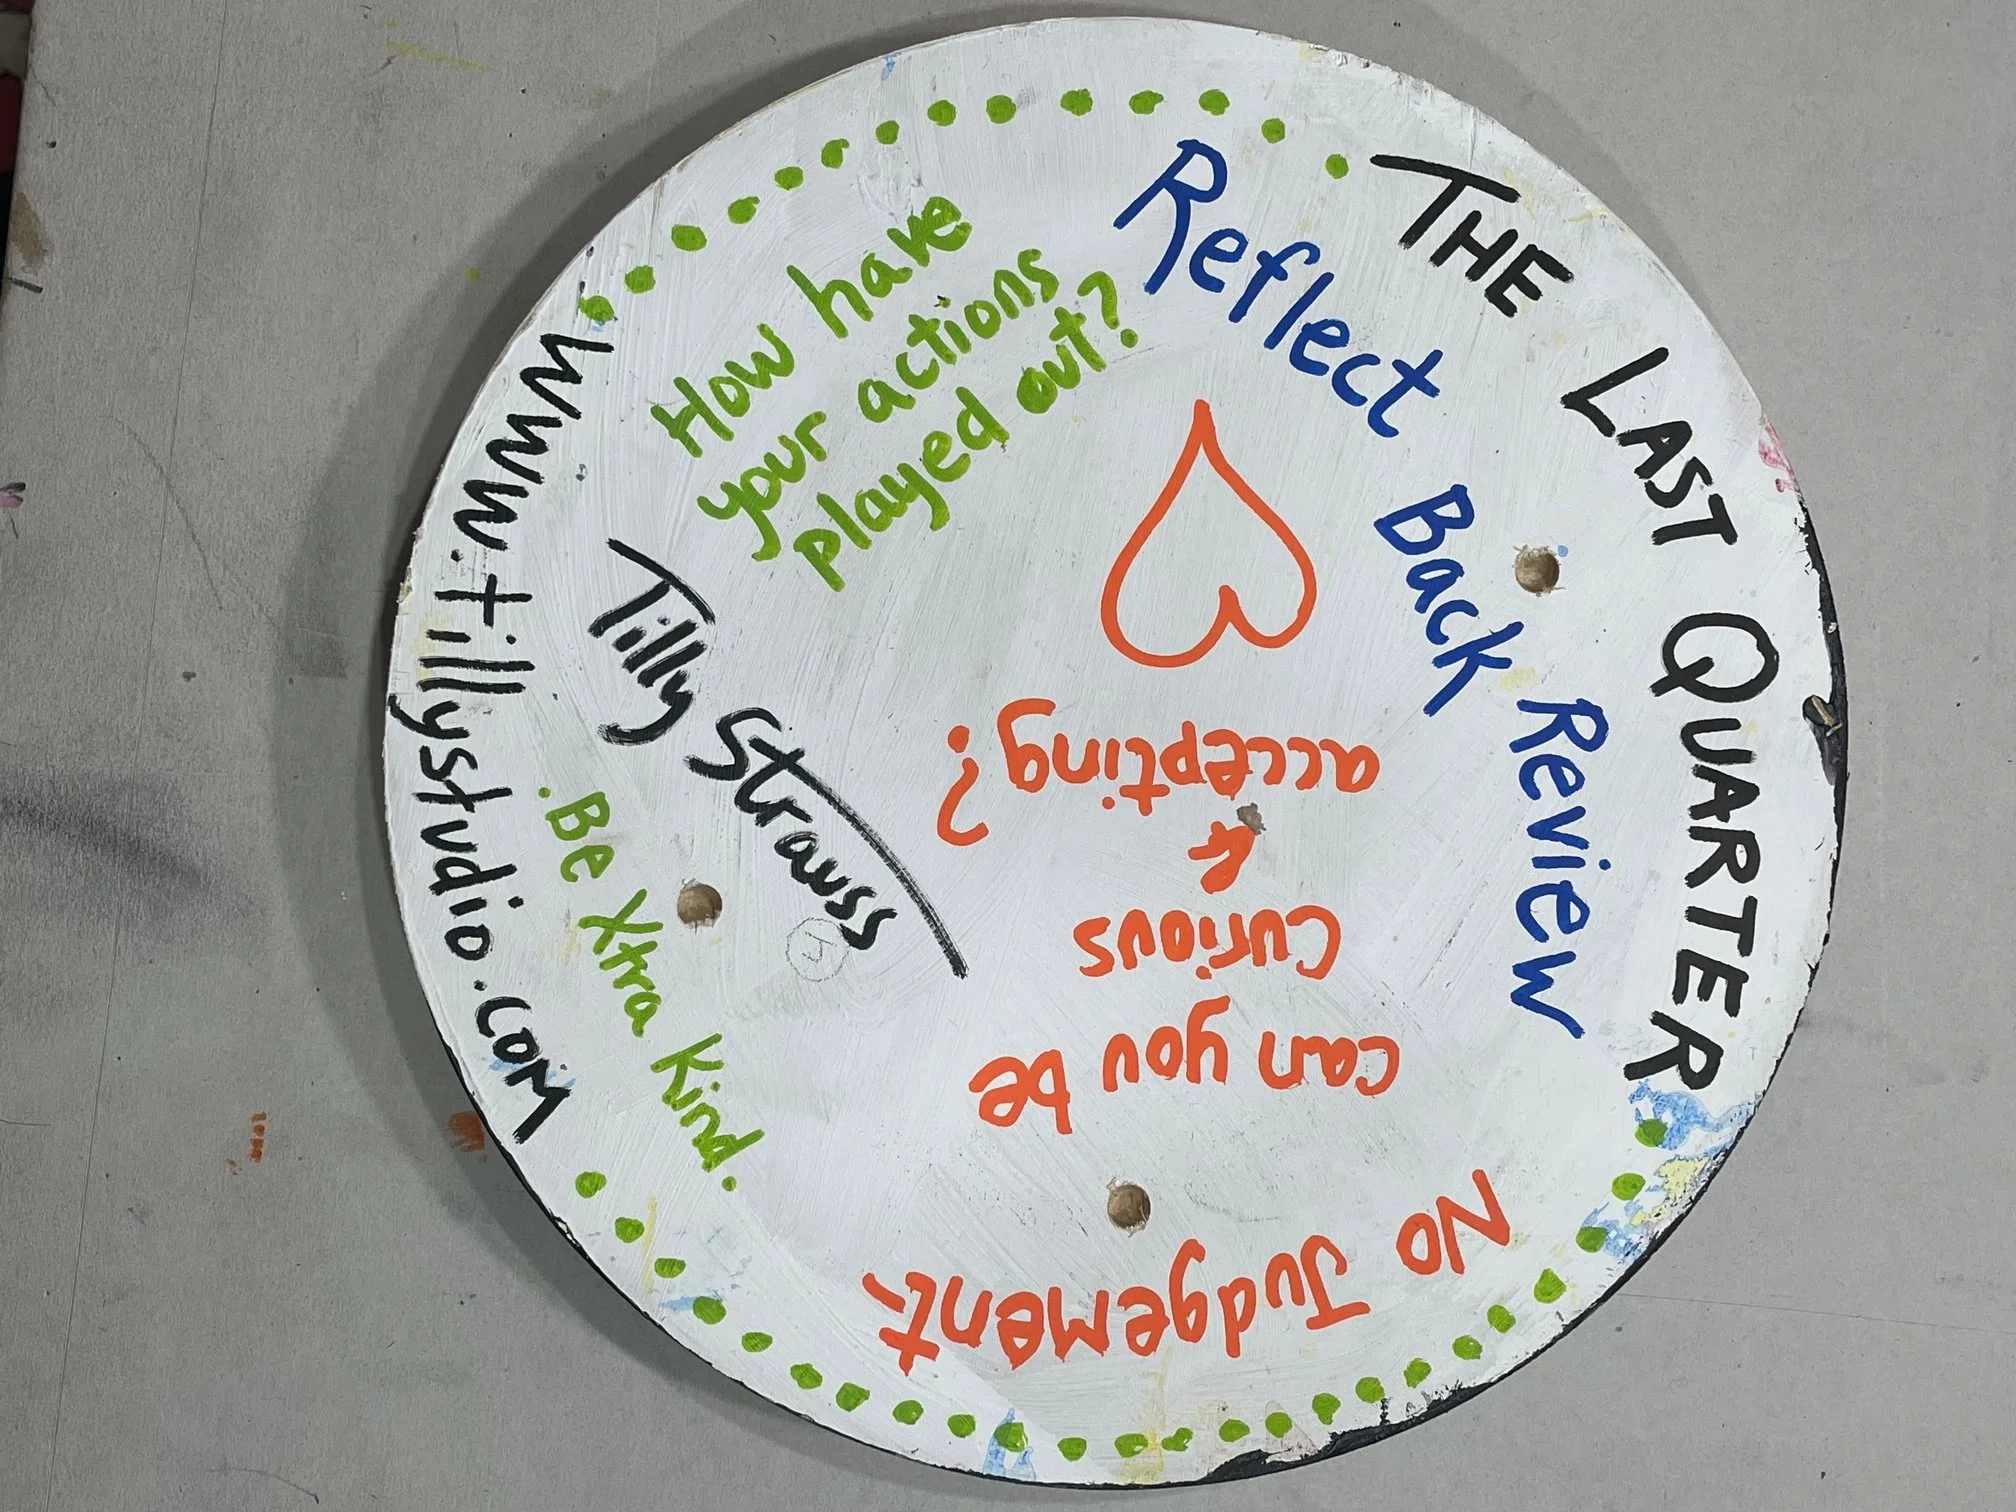 THE LAST QUARTER
Reflect Back Review
How have
your actions
played out?
No Judgement.
can you be
curious
&
accepting?
Tilly Strauss
.Be Xtra Kind.
www.tillystudio.com